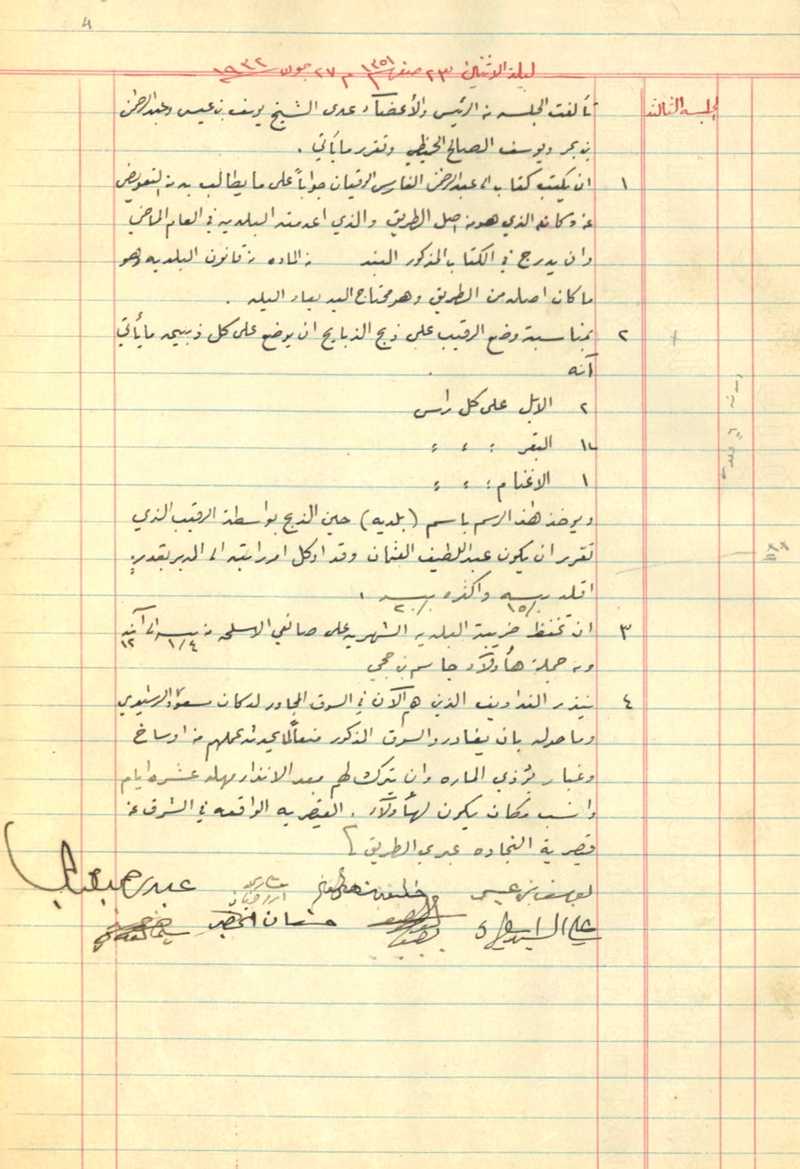 ٤
ليلة الاثنين ٢٣ صفر ١٣٥١ م ٢٧ جون ١٩٣٢
الجلسه الثالثه
تألفت الجلسه من الرئيس والأعضآء عدى الشيخ يوسف بن عيسى وعبدالرحمن
بن بحر ويوسف الصالح الحميظي وتقرر مايأتي .
١ ان يكتب كتاب الى عبدالرحمن الفارس الوقيان جواباً على ما يطالب به من التعويض
عن دكانه الذي هو من اصل الطريق والذي اعدمته البلديه في العام الماضي
وان يدرج في الكتاب المذكور البند من الماده من قانون البلديه وهو
ما كان اصله من الطريق وهو محتاج اليه يعاد اليه .
٢ بمناسبة وضع الرقيب على ذبح الذبايح ان يوضع على كل ذبيحه مايأتي
آنه
٢ الابل على كل راس
١١/٢ البقر ؛ ؛ ؛
١ الاغنام ؛ ؛ ؛
ويوخذ هذا الرسم باسم (بلديه) حين الذبح بواسطة الرقيب الذي
تقرر ان يكون عبداللطيف العثمان وقد اوكل امر راتبه الى المدير بتقدير
اقله ١٥ ربيه واكثره ٢٠ ربيه .
٣ ان تخفظ ضريبة البلديه الشهريه على صانعي الاسلحه من ربيه ١/٤ الى آنه ١٢
ومن جملة هاؤلآء جاسم بن حجي
٤ ينذر النداويف الذين هم الآن في السوق المجاور لدكان سعود الرشيدي
وما حوله بان يغادروا السوق المذكور منعاً لما يحدثه عملهم من اوساخ
وغبار يؤذي الماره وان يترك لهم بعد الانذار مهلة عشرة ايام
وانسب مكان يكون لهاؤلآء . القيصريه الواقعه في الشرق عن
قيصرية النجاده عبري الطريق
يوسف بن عيسى
علي السيد سليمان
مشعان الخضير